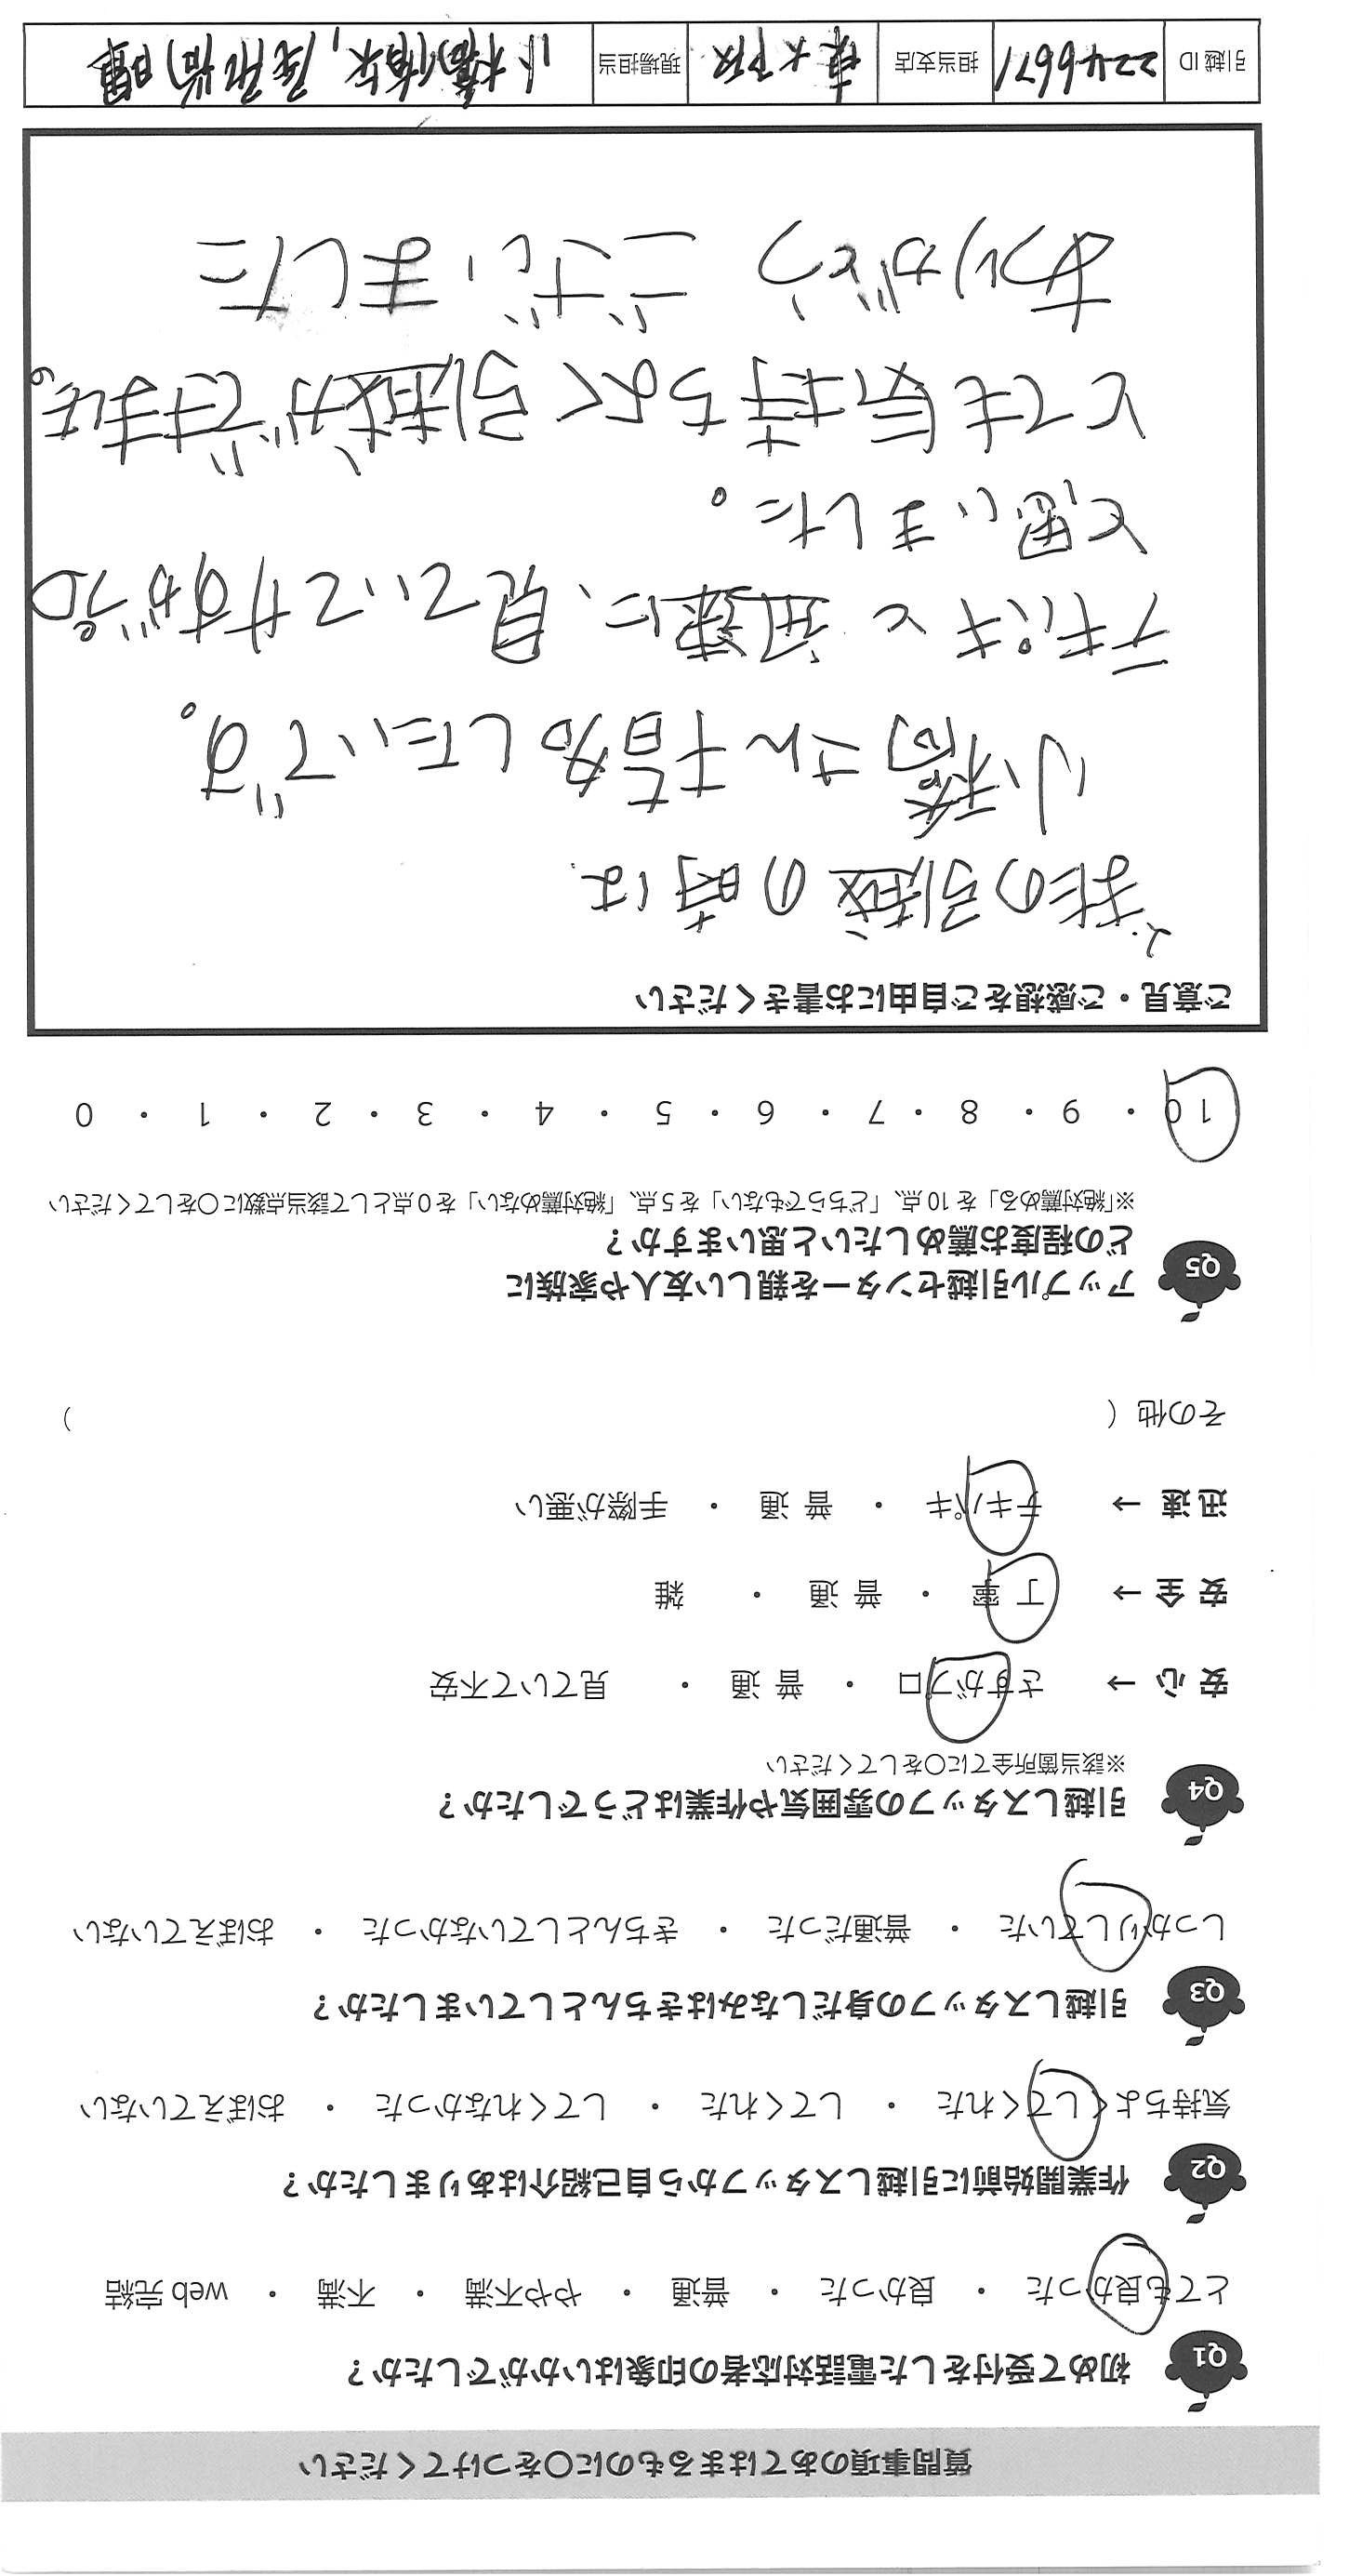 質問事項のあてはまるものに○をつけてください
Q1 初めて受付をした電話対応者の印象はいかがでしたか？
とても良かった ・ 良かった ・ 普通 ・ やや不満 ・ 不満 ・ web 完結
Q2 作業開始前に引越しスタッフから自己紹介はありましたか？
気持ちよくしてくれた ・ してくれた ・ してくれなかった ・ おぼえていない
Q3 引越しスタッフの身だしなみはきちんとしていましたか？
しっかりしていた ・ 普通だった ・ きちんとしていなかった ・ おぼえていない
Q4 引越しスタッフの雰囲気や作業はどうでしたか？
※該当箇所全てに○をしてください
安 心 → さすがプロ ・ 普 通 ・ 見ていて不安
安 全 → 丁 寧 ・ 普 通 ・ 雑
迅 速 → テキパキ ・ 普 通 ・ 手際が悪い
その他 ( )
Q5 アップル引越センターを親しい友人や家族に
どの程度お薦めしたいと思いますか？
※「絶対薦める」を 10 点、「どちらでもない」を 5 点、「絶対薦めない」を 0 点として該当点数に○をしてください
10 ・ 9 ・ 8 ・ 7 ・ 6 ・ 5 ・ 4 ・ 3 ・ 2 ・ 1 ・ 0
ご意見・ご感想をご自由にお書きください
次の引越の時は
小橋さん 指名したいです。
テキパキと迅速に、見ていてさすがプロ
と思いました。
とても気持ちよく引越ができました。
ありがとうございました
引越 ID 2246671 担当支店 東大阪 現場担当 小橋